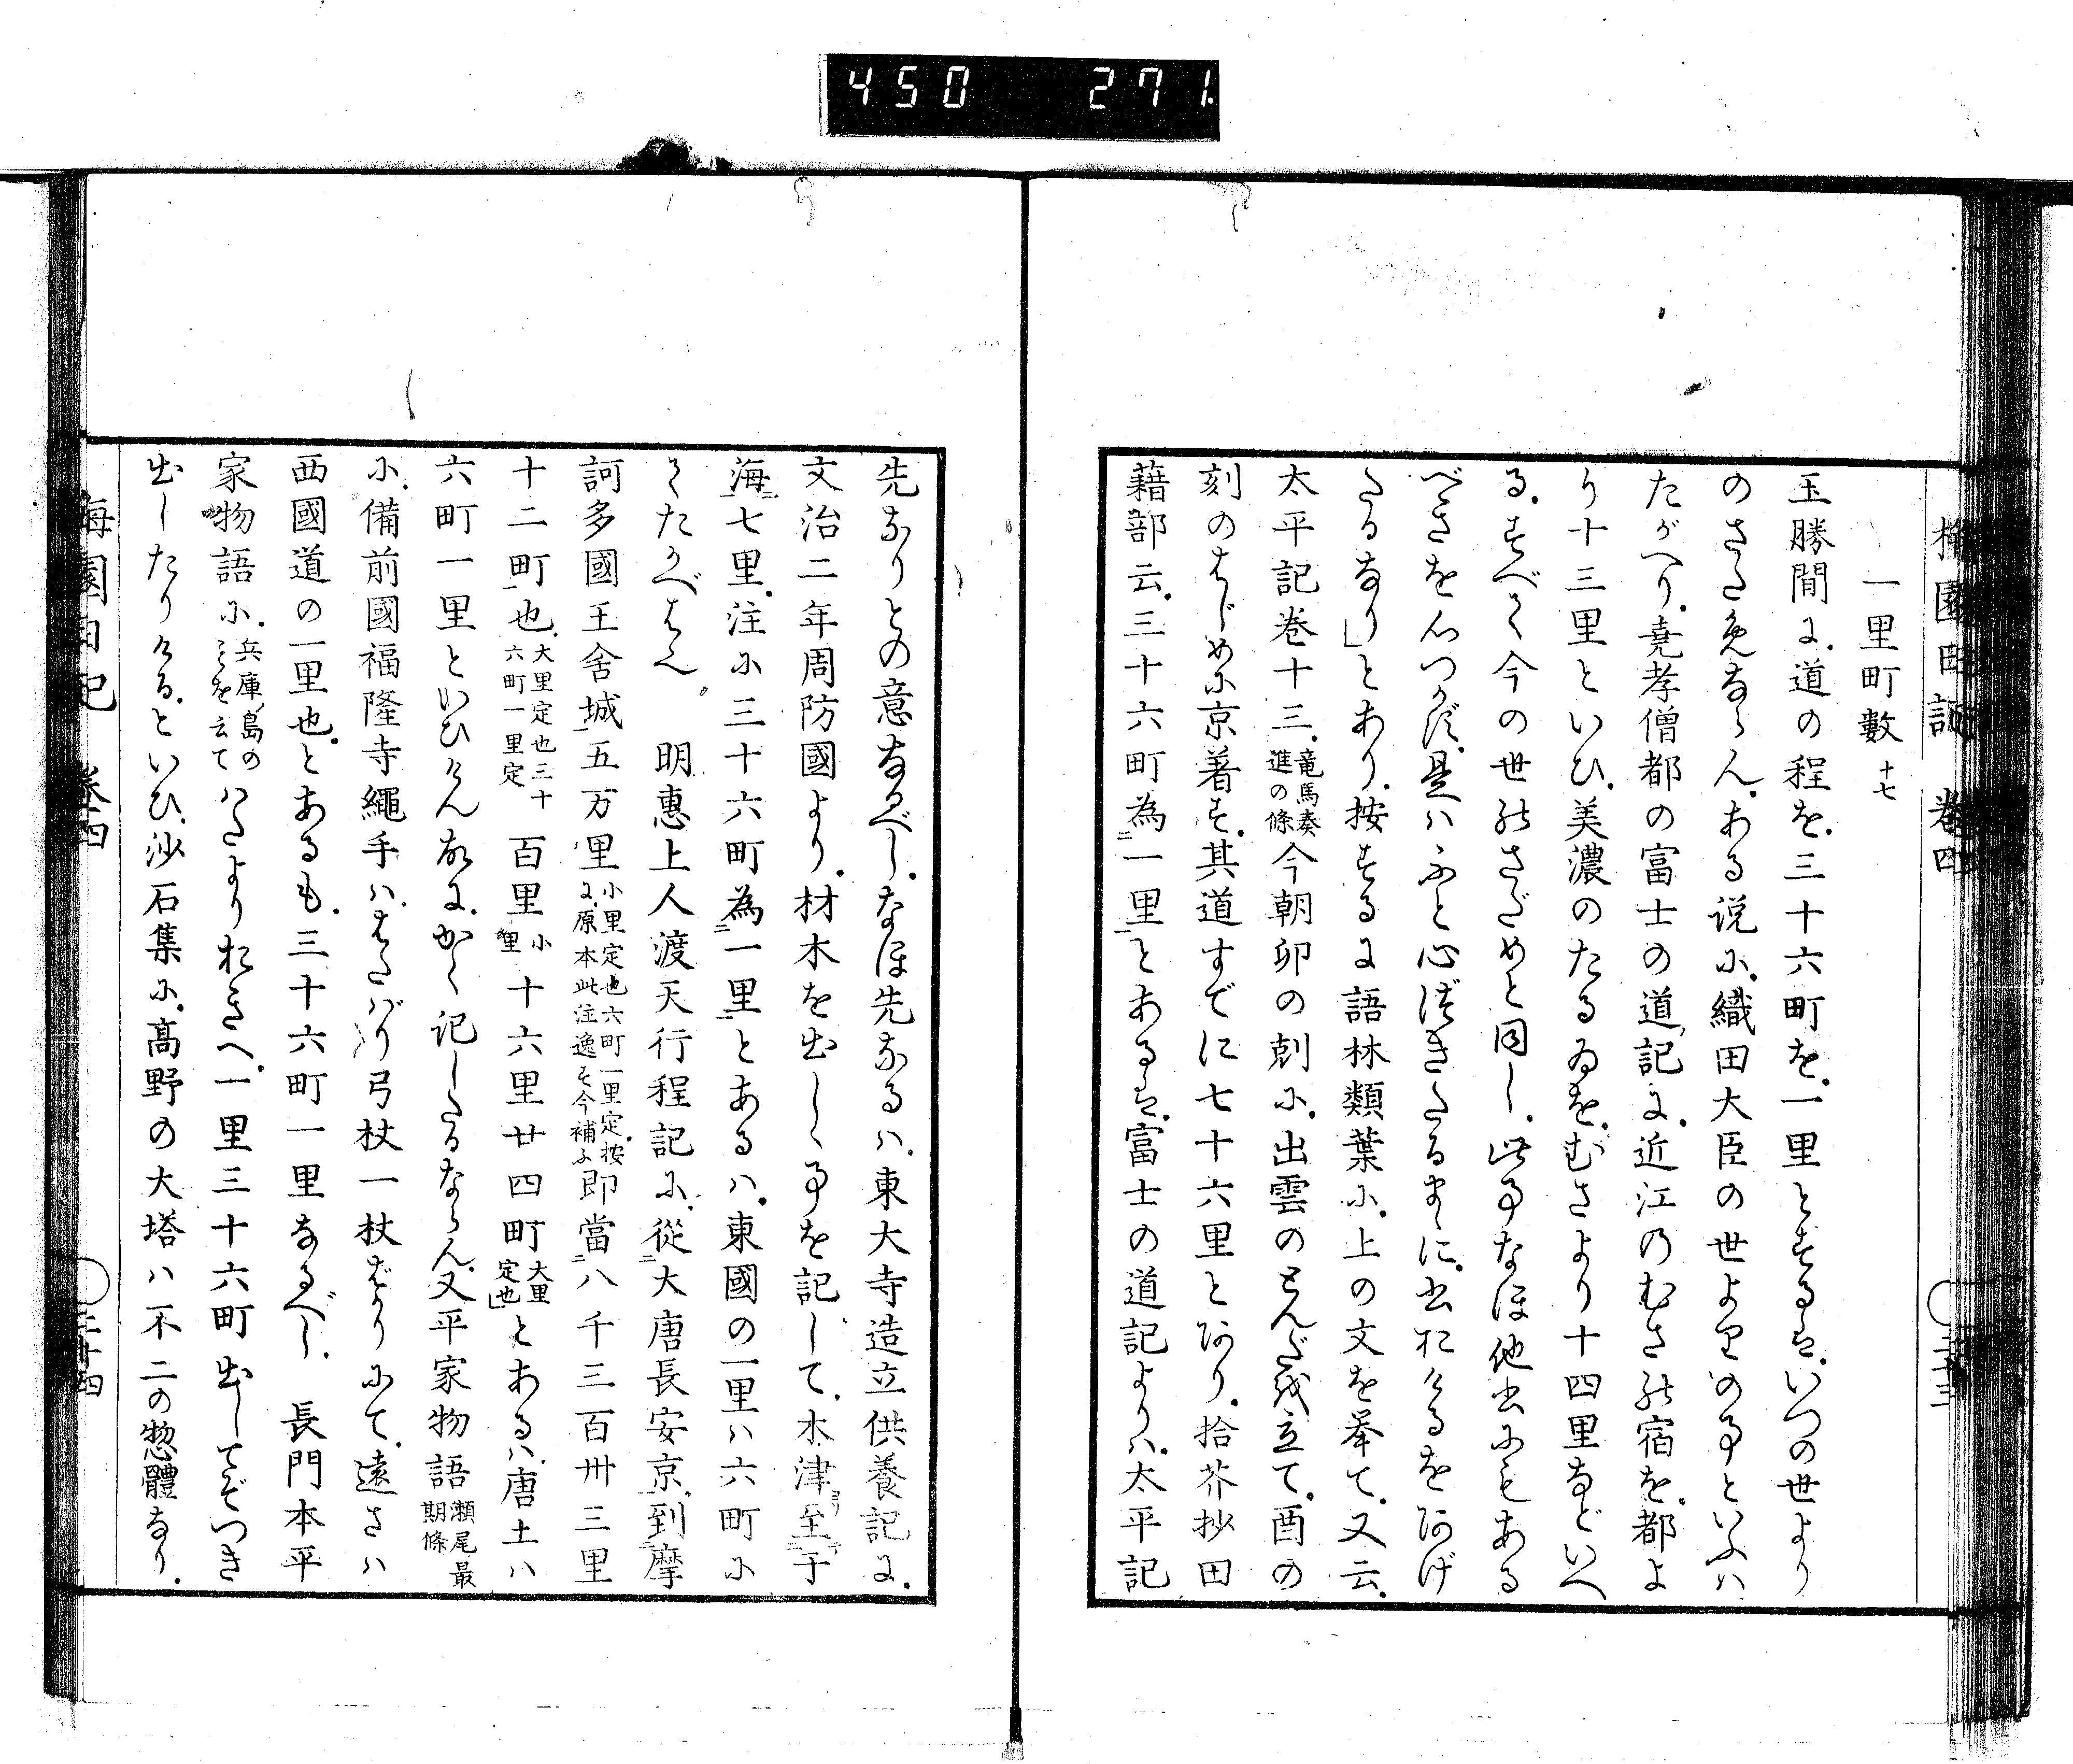 450 271
梅園日記 卷四
一里町數 十七
玉勝間に、道の程を、三十六町を、一里とするは、いつの世より
のさだめならん、ある説に、織田大臣の世よりの事といふは
たがへり、堯孝僧都の富士の道記に、近江のむさの宿を、都よ
り十三里といひ、美濃のたるゐを、むさより十四里などいへ
る、すべて今の世のさだめと同し、此事なほ他書にもあるべ
べきを心つかず、是はふと心づきたるまゝに、書おけるをあげ
たるなり」とあり、按するに語林類葉に、上の文を挙て、又云、
太平記卷十三、竜馬奏進の條 今朝卯の刻に、出雲のとんだを立て、酉の
刻のはじめに京着す、其道すでに七十六里とあり、拾芥抄田
籍部云、三十六町為一里とあるは、富士の道記よりは、太平記
先なりとの意なるべし、なほ先なるは、東大寺造立供養記に、
文治二年周防國より、材木を出しゝ事を記して、木津至于
海七里、注に三十六町為一里とあるは、東國の一里は六町に
てたがへばえ 明惠上人渡天行程記に、從大唐長安京到摩
訶多國王舍城五万里 小里定也六町一里定、按に、原本此注逸す今補ふ 即當八千三百卅三里
十二町也、大里定也三十六町一里定 百里小里 十六里廿四町 大里定也」とあるは、唐土は
六町一里といひけん故に、かく記したるならん、又平家物語 瀬尾最期條
に、備前國福隆寺繩手は、はたばり弓杖一杖ばかりにて、遠さは
西國道の一里也、とあるも、三十六町一里なるべし、 長門本平
家物語に、兵庫島のことを云て はたよりおきへ、一里三十六町出してぞつき
出したりける、といひ、沙石集に、高野の大塔は不二の惣體なり、
梅園日記 卷四
三十四